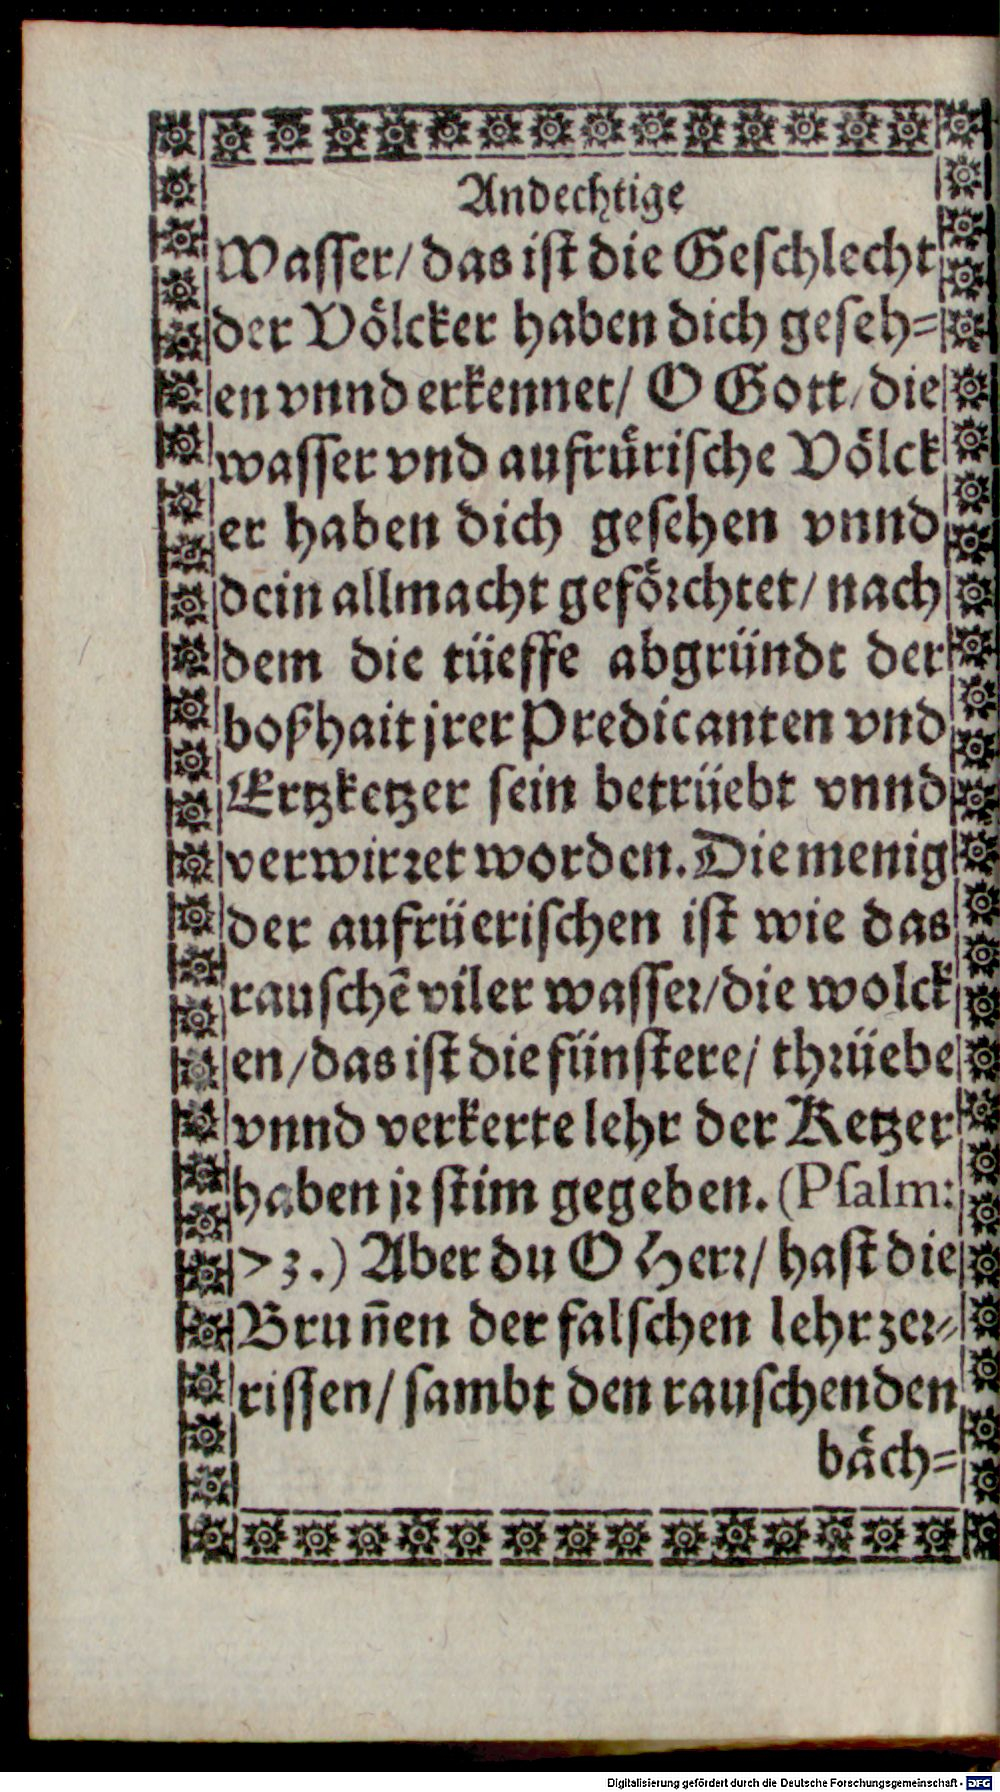 Andechtige
Wasser/ das ist die Geschlecht
der Völcker haben dich geseh=
en vnnd erkennet/ O Gott/ die
wasser vnd aufrürische Völck
er haben dich gesehen vnnd
dein allmacht geförchtet/ nach
dem die tüeffe abgründt der
boßhait jrer Predicanten vnd
Ertzketzer sein betrüebt vnnd
verwirret worden. Die menig
der aufrüerischen ist wie das
rauschē viler wasser/ die wolck
en/ das ist die fünstere/ thrüebe
vnnd verkerte lehr der Ketzer
haben jr stim gegeben. (Psalm:
73.) Aber du O Herr/ hast die
Brun̄en der falschen lehr zer=
rissen/ sambt den rauschenden
bäch=
Digitalisierung gefördert durch die Deutsche Forschungsgemeinschaft - DFG